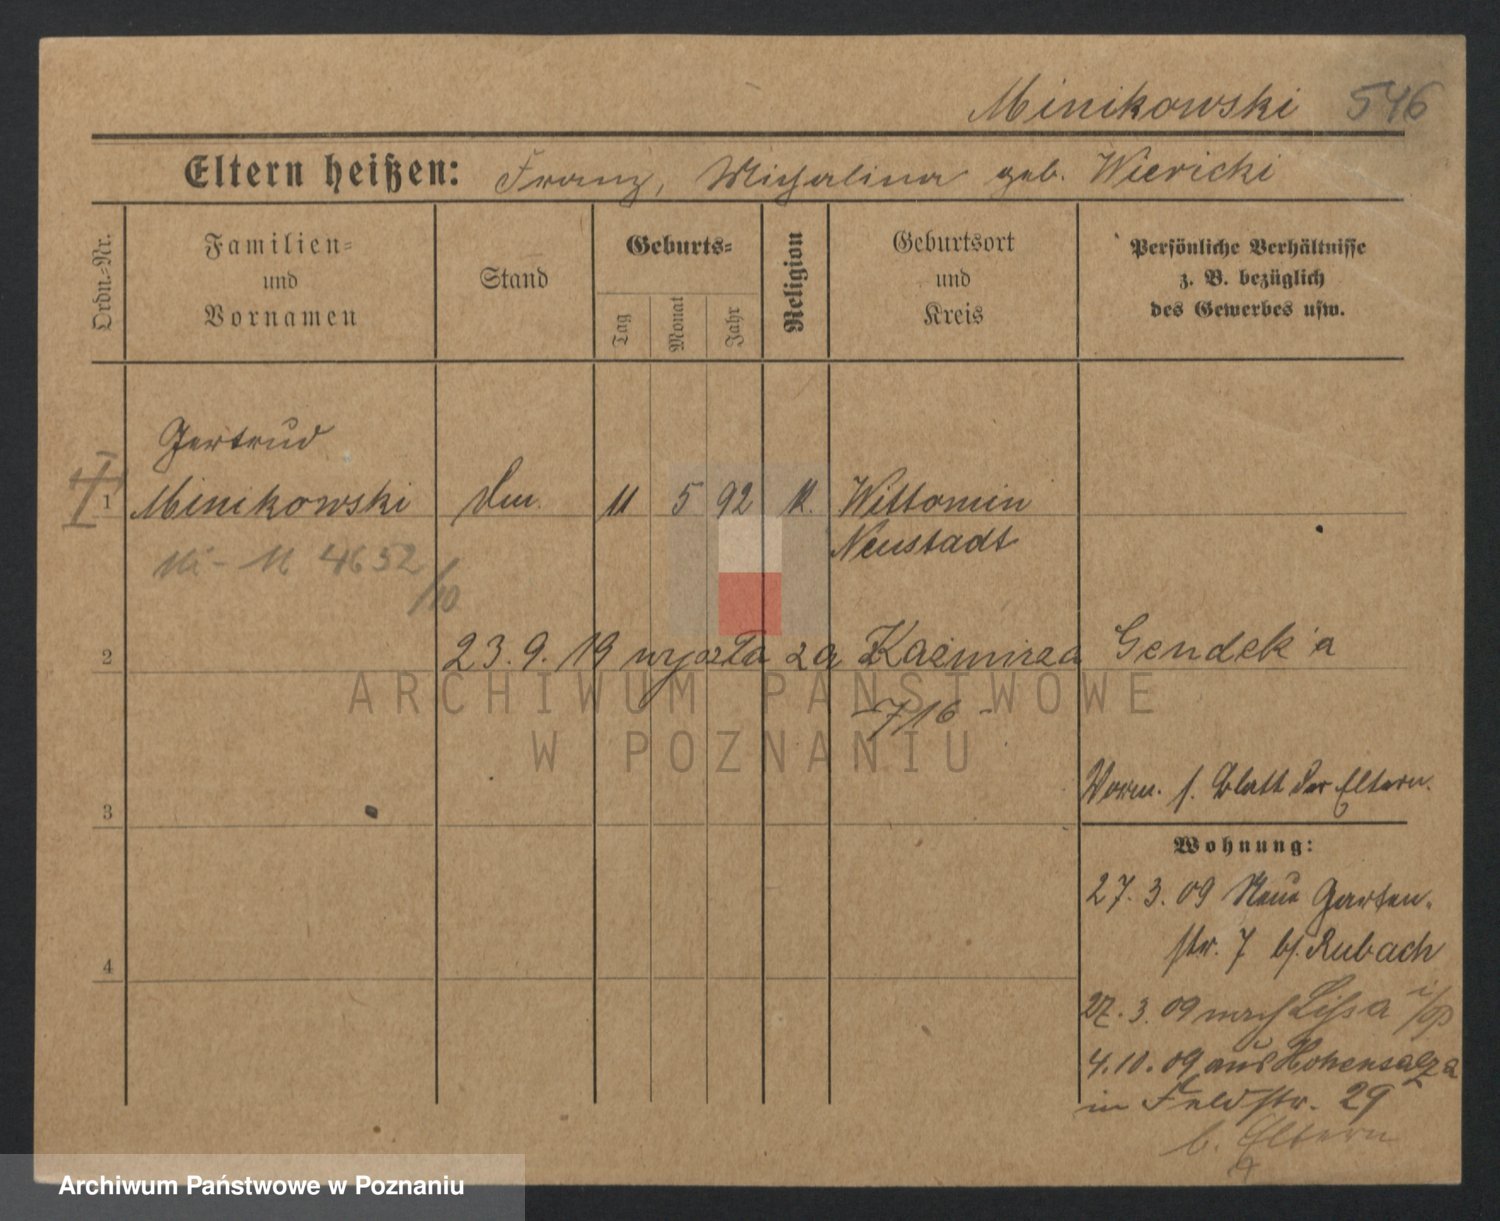 Minikowski 546
Eltern heißen: Franz, Michalina geb. Wiericki
Ordn.-Nr.
Familien-
und
Vornamen
Stand
Geburts-
Tag
Monat
Jahr
Religion
Geburtsort
und
Kreis
Persönliche Verhältnisse
z. B. bezüglich
des Gewerbes usw.
Gertrud
1 Minikowski 11 5 92 k. Wittomin
Neustadt
4652/10
2 23.9.19 wyszła za Kaźmirza Gendek'a
- 716 -
ARCHIWUM PAŃSTWOWE
W POZNANIU
Vorm. s. Blatt der Eltern.
3
Wohnung:
27.3.09 Neue Garten-
str. 7 b/. Rubach
4
27.3.09 nach Lissa i/P
4.10.09 aus Hohensalza
in Feldstr. 29
b. Eltern
Archiwum Państwowe w Poznaniu